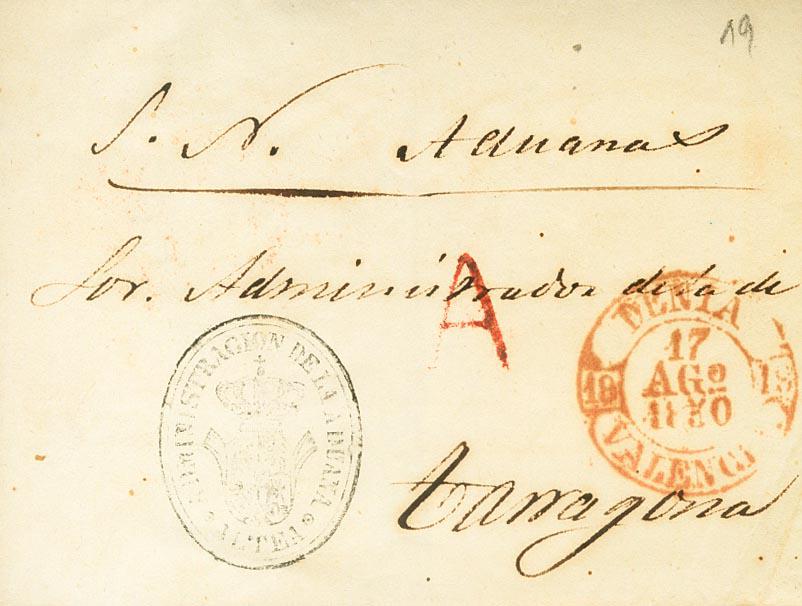 19
S. N. Aduanas
Sor. Administrador de la de
A
DENIA
17
AGO
1850
18 18
VALENCIA
ADMINISTRACION DE LA ADUANA
ALTEA
Tarragona